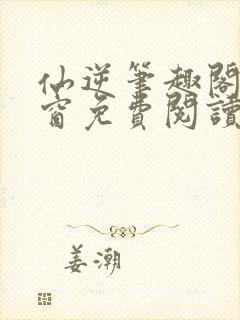 仙逆筆趣閣
窗免費閱讀
姜潮